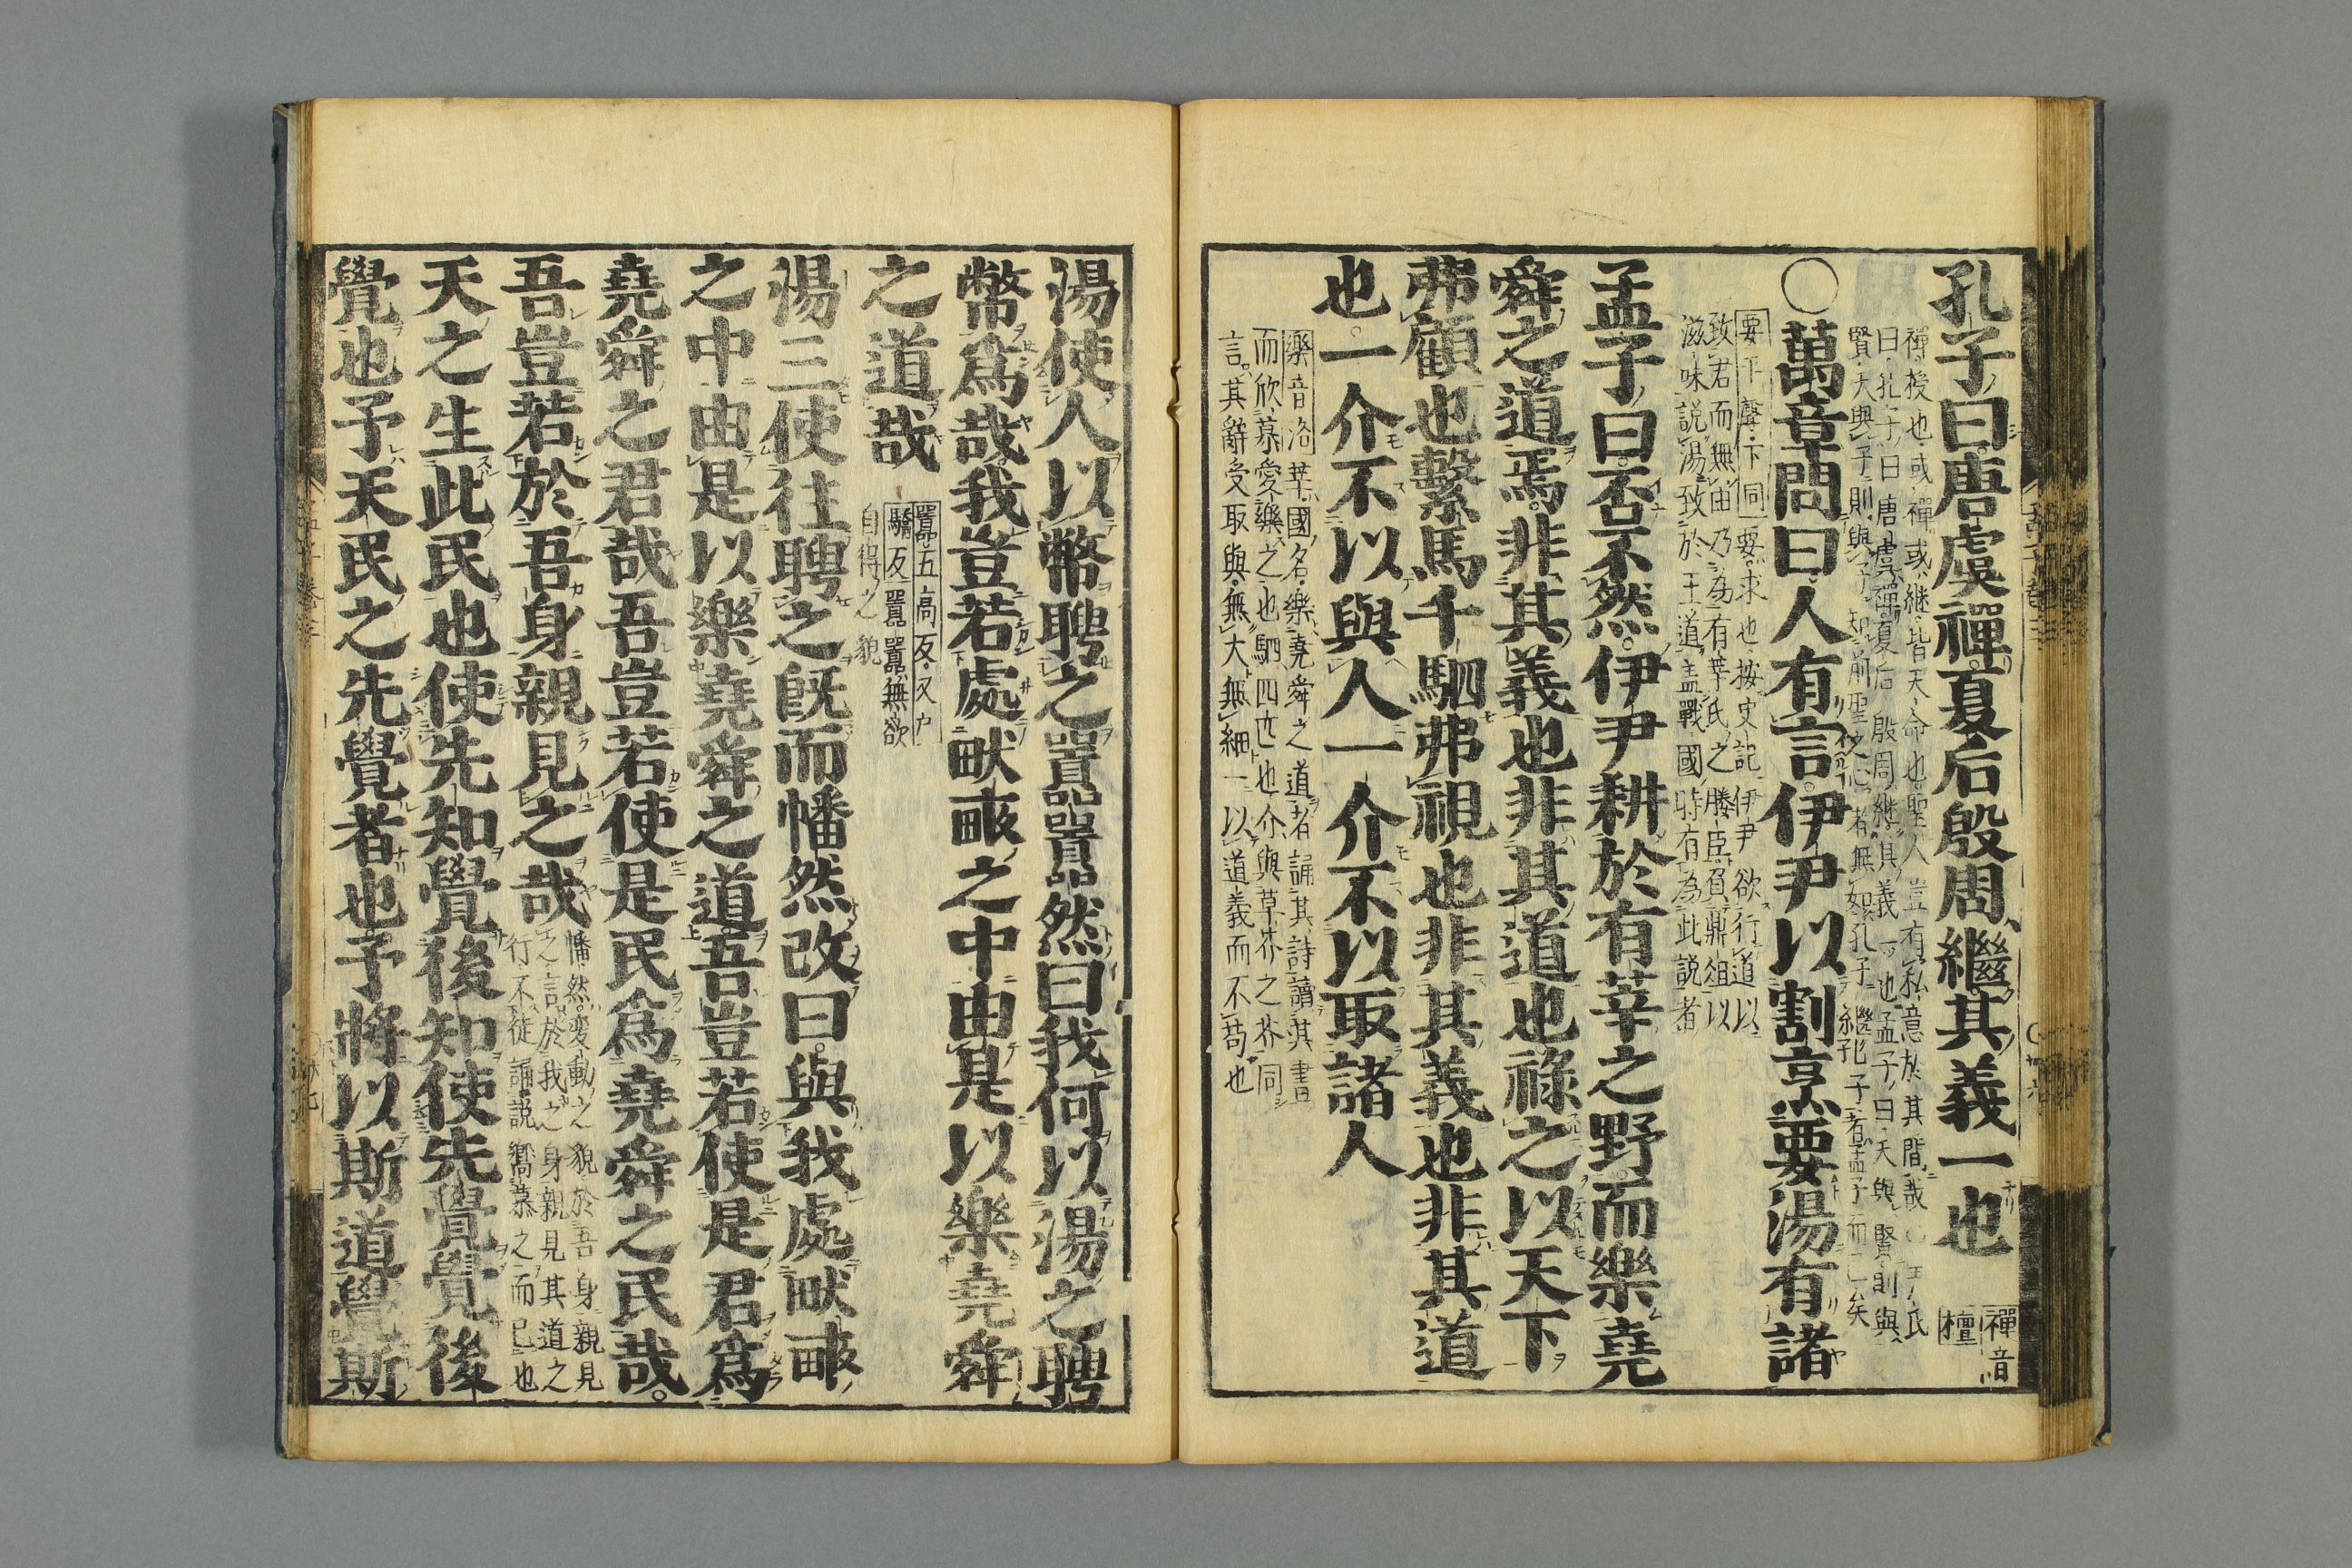 孔子曰唐虞禪夏后殷周繼其義一也
禪音
檀
禪授也或禪或継皆天命也聖人豈有私意於其間哉 尹氏
曰孔子曰唐虞禪夏后殷周継其義一也孟子曰天與賢則與
賢天與子則與子知前聖之心者無如孔子継孔子者孟子而已矣
○萬章問曰人有言伊尹以割烹要湯有諸
要平聲下同要求也按史記伊尹欲行道以
致君而無由乃為有莘氏之媵臣負鼎俎以
滋味説湯致於王道盖戰國時有為此説者
孟子曰否不然伊尹耕於有莘之野而樂堯
舜之道焉非其義也非其道也祿之以天下
弗顧也繫馬千駟弗視也非其義也非其道
也一介不以與人一介不以取諸人
樂音洛莘國名樂堯舜之道者誦其詩讀其書
而欣慕愛樂之也駟四匹也介與草芥之芥同
言其辭受取與無大無細一以道義而不苟也
湯使人以幣聘之囂囂然曰我何以湯之聘
幣爲哉我豈若處畎畝之中由是以樂堯舜
之道哉
囂五高反又戸
驕反囂囂無欲
自得之貌
湯三使往聘之既而幡然改曰與我處畎畝
之中由是以樂堯舜之道吾豈若使是君爲
堯舜之君哉吾豈若使是民爲堯舜之民哉
吾豈若於吾身親見之哉
幡然変動之貌於吾身親見
之言於我之身親見其道之
行不徒誦説嚮慕之而已也
天之生此民也使先知覺後知使先覺覺後
覺也予天民之先覺者也予將以斯道覺斯